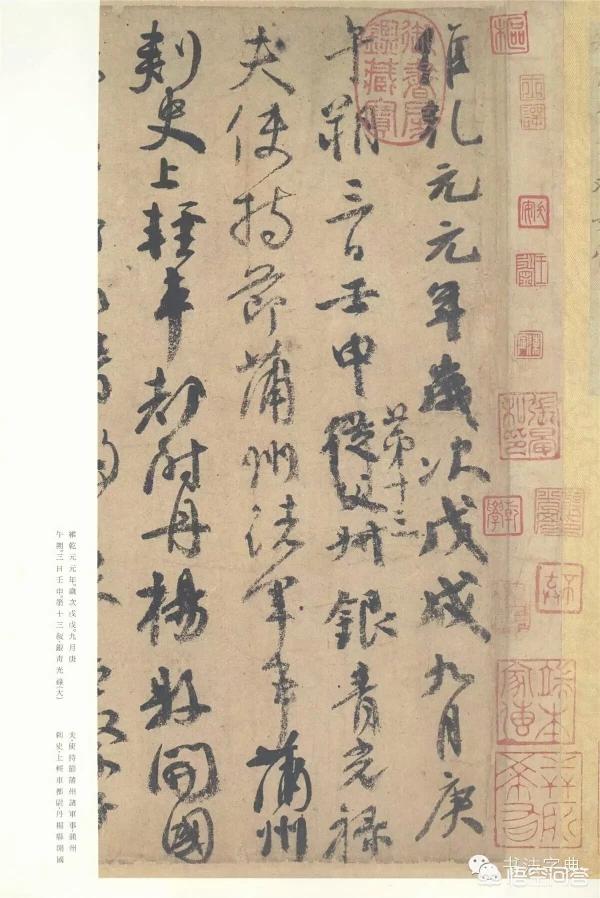 維乾元元年歲次戊戌九月庚
午朔三日壬申
第十三
從父叔銀青光祿
夫使持節蒲州諸軍事蒲州
刺史上輕車都尉丹楊縣開國
御書房鑑藏寶
維乾元元年。歲次戊戌。九月庚
午朔。三日壬申。第十三叔。銀青光祿(大)
夫。使持節蒲州諸軍事。蒲州
刺史。上輕車都尉。丹楊縣開國
书法字典
悟空问答